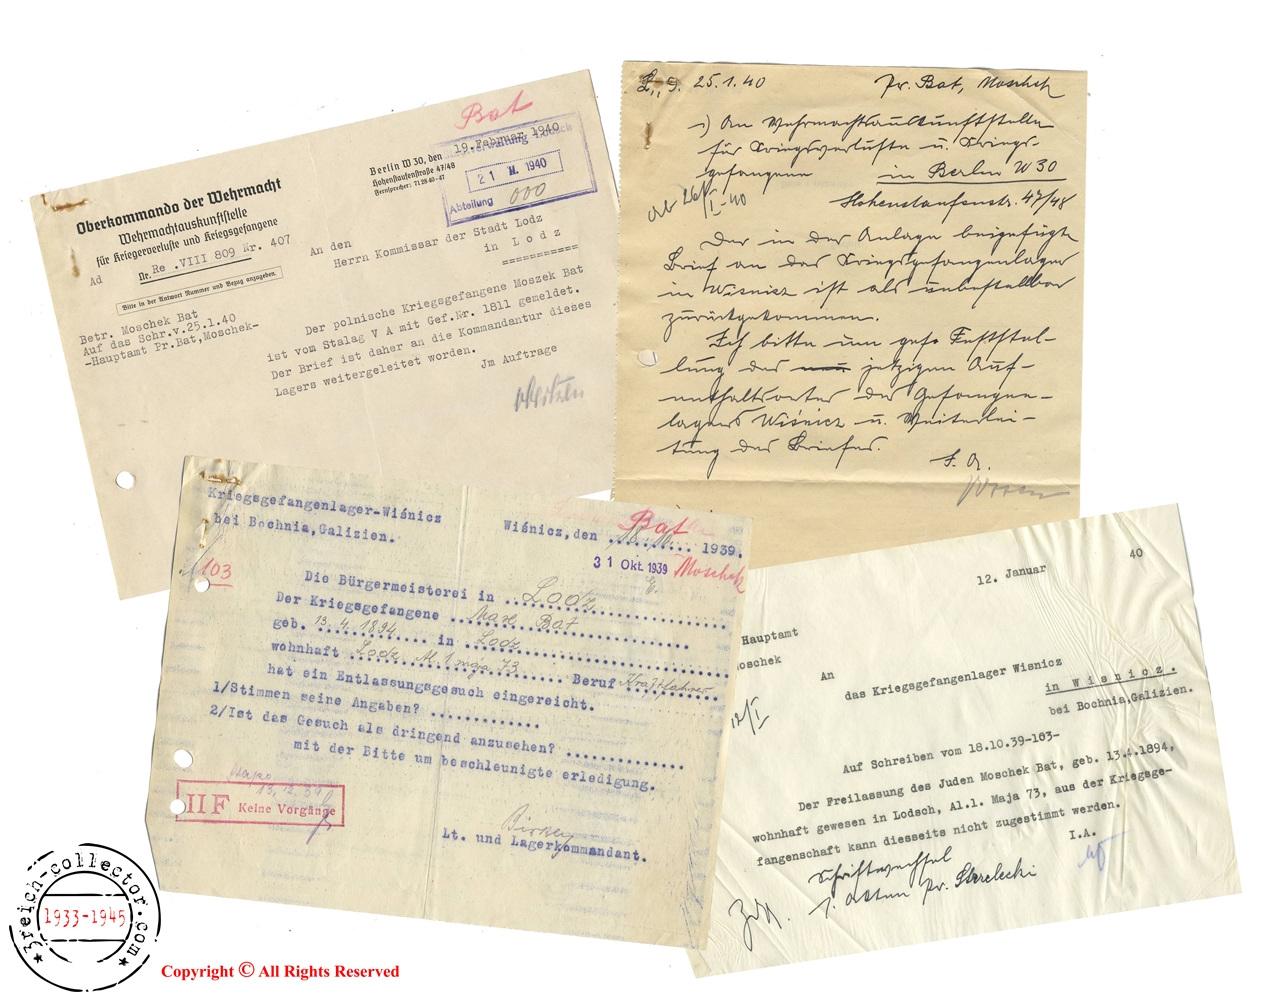 Bat
19.Februar 1940
Berlin W 30, den
Hohenstaufenstraße 47/48
Fernsprecher:
21. 1940
Abteilung 000
Oberkommando der Wehrmacht
Wehrmachtauskunftstelle
für Kriegerverluste und Kriegsgefangene
Ad
Nr. Re .VIII 809 Nr. 407
Bitte in der Antwort Nummer und Bezug anzugeben.
An den
Herrn Kommissar der Stadt Lodz
in Lodz
Betr. Moschek Bat
Auf das Schr.v.25.1.40
-Hauptamt Pr.Bat,Moschek-
Der polnische Kriegsgefangene Moszek Bat
ist vom Stalag V A mit Gef.Nr. 1811 gemeldet.
Der Brief ist daher an die Kommandantur dieses
Lagers weitergeleitet worden.
Jm Auftrage
25.1.40
Pr. Bat, Moschek
1) An Wehrmachtsauskunftstelle
für Kriegsverluste u. Kriegs-
gefangene in Berlin W 30
Hohenstaufenstr. 47/48
ab 26/I-40
Der in der Anlage beigefügte
Brief an das Kriegsgefangenlager
in Wiśnicz ist als unbestellbar
zurückgekommen.
Ich bitte um gefs Feststel-
lung des jetzigen Auf-
enthaltsortes des Gefangen-
lagers Wiśnicz u. Weiterlei-
tung des Briefes.
I. A.
Kriegsgefangenlager-Wiśnicz
bei Bochnia,Galizien.
Bat
Wiśnicz,den 18. 10. 1939.
31 Okt. 1939
Moschek
103
Die Bürgermeisterei in Lodz
Der Kriegsgefangene Bat
geb. 13.4.1894 in Lodz
wohnhaft Lodz 73 Beruf Kraftfahrer
hat ein Entlassungsgesuch eingereicht.
1/Stimmen seine Angaben?
2/Ist das Gesuch als dringend anzusehen?
mit der Bitte um beschleunigte erledigung.
13.12.39
II F Keine Vorgänge
Lt. und Lagerkommandant.
12. Januar 40
Hauptamt
oschek
An
das Kriegsgefangenlager Wisnicz
in Wisnicz.
bei Bochnia,Galizien.
12/I
Auf Schreiben vom 18.10.39-103-
Der Freilassung des Juden Moschek Bat, geb. 13.4.1894,
wohnhaft gewesen in Lodsch, Al.1. Maja 73, aus der Kriegsge-
fangenschaft kann diesseits nicht zugestimmt werden.
I.A.
Schriftwechsel
Akten Pr. Strelecki
3reich-collector.com
1933-1945
Copyright © All Rights Reserved